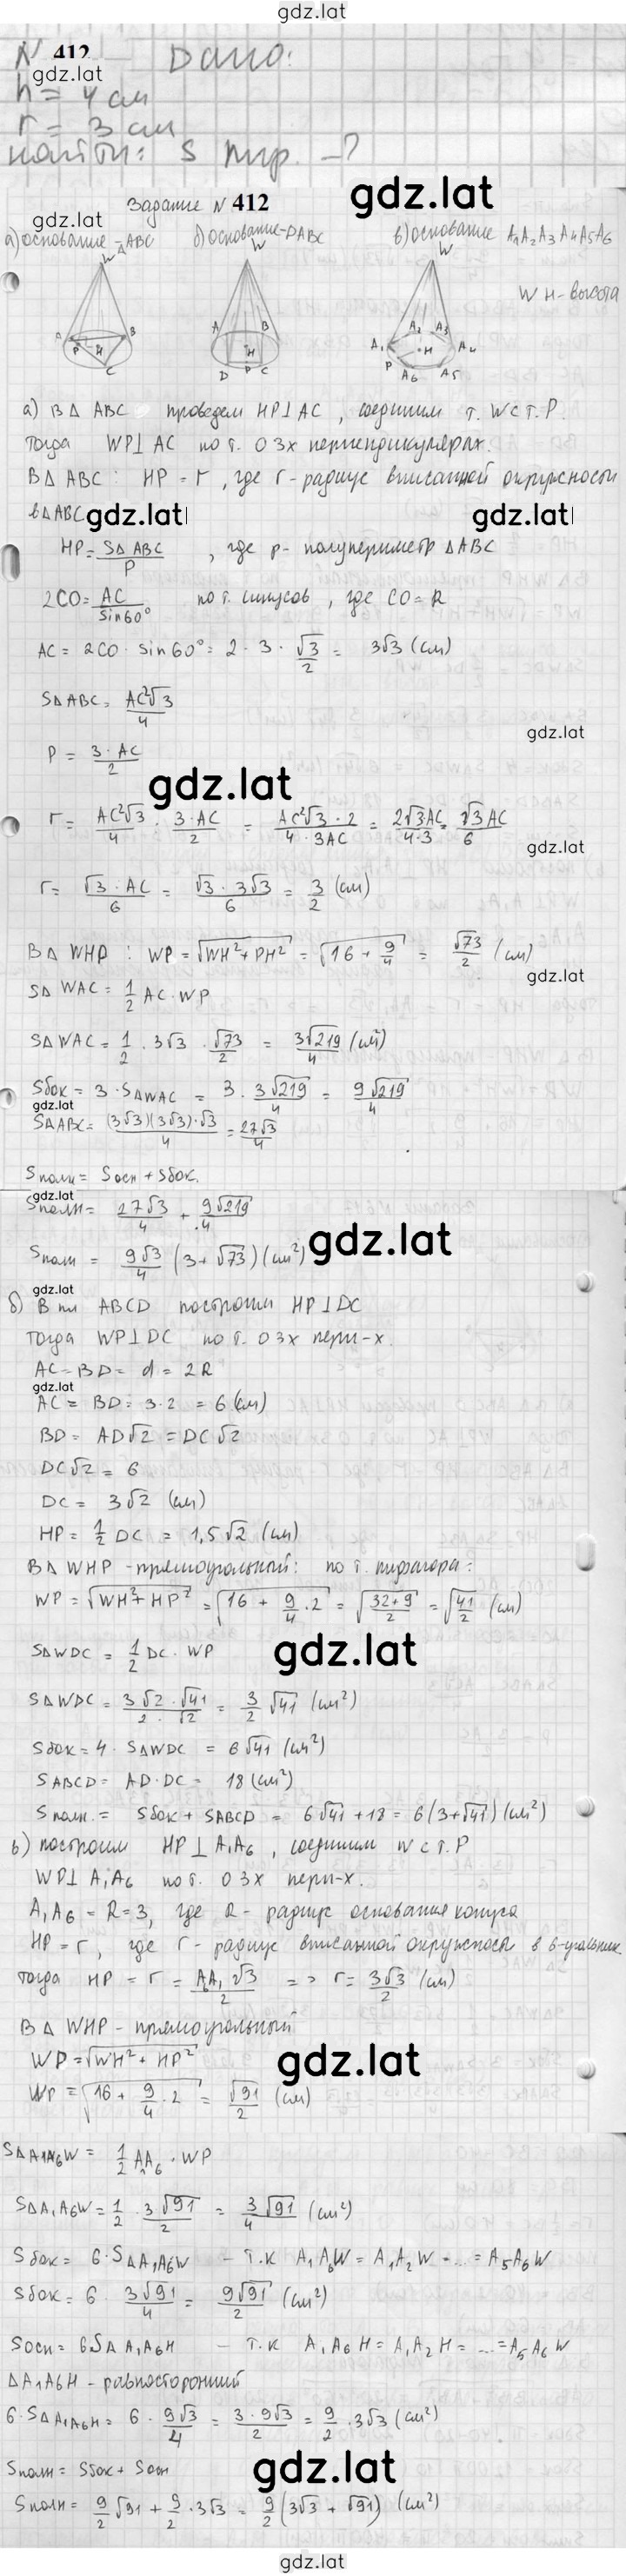 gdz.lat
N 412 Дано:
gdz.lat
h = 4 см
r = 3 см
найти: S пир. -?
gdz.lat
Задание N 412
gdz.lat
а) основание - △ABC б) основание - DABC в) основание A₁A₂A₃A₄A₅A₆
W W W
WH - высота
A B P H C
A B H D P C
A₁ A₂ A₃ A₄ H P A₆ A₅
а) В△ ABC проведем HP⊥AC, соединим т. W с т. P.
тогда WP⊥AC по т. о 3х перпендикулярах.
В△ ABC: HP = r, где r - радиус вписанной окружности
в△ABC
gdz.lat gdz.lat
HP = S△ABC/P, где p - полупериметр △ABC
2CO = AC/sin60° по т. синусов, где CO = R
AC = 2CO · sin60° = 2 · 3 · √3/2 = 3√3 (см)
S△ABC = AC²√3/4
gdz.lat
P = 3·AC/2
gdz.lat
r = AC²√3/4 : 3·AC/2 = AC²√3·2/4·3AC = 2√3AC/4·3 = √3AC/6
gdz.lat
r = √3·AC/6 = √3·3√3/6 = 3/2 (см)
В△ WHP: WP = √WH²+PH² = √16+9/4 = √73/2 (см)
gdz.lat
S△WAC = 1/2 AC·WP
S△WAC = 1/2 · 3√3 · √73/2 = 3√219/4 (см²)
Sбок = 3·S△WAC = 3·3√219/4 = 9√219/4
gdz.lat
S△ABC = (3√3)(3√3)·√3/4 = 27√3/4
Sполн = Sосн + Sбок.
gdz.lat
Sполн = 27√3/4 + 9√219/4
gdz.lat
Sполн = 9√3/4 (3+√73) (см²)
gdz.lat
б) В пл ABCD построим HP⊥DC
тогда WP⊥DC по т. о 3х перп-х.
AC = BD = d = 2R
gdz.lat
AC = BD = 3·2 = 6 (см)
BD = AD√2 = DC√2
DC√2 = 6
DC = 3√2 (см)
HP = 1/2 DC = 1,5√2 (см)
В△ WHP - прямоугольный: по т. пифагора:
WP = √WH²+HP² = √16+9/4·2 = √32+9/2 = √41/2 (см)
gdz.lat
S△WDC = 1/2 DC·WP
S△WDC = 3√2·√41/2·√2 = 3/2 √41 (см²)
Sбок = 4·S△WDC = 6√41 (см²)
SABCD = AD·DC = 18 (см²)
Sполн. = Sбок + SABCD = 6√41+18 = 6(3+√41) (см²)
в) построим HP⊥A₁A₆, соединим W с т. P
WP⊥A₁A₆ по т. о 3х перп-х.
A₁A₆ = R = 3, где R - радиус основания конуса
HP = r, где r - радиус вписанной окружности в 6-угольник
тогда HP = r = A₆A₁√3/2 => r = 3√3/2 (см)
В△ WHP - прямоугольный
gdz.lat
WP = √WH²+HP²
WP = √16+9/4·2 = √91/2 (см)
S△A₁A₆W = 1/2 A₁A₆·WP
S△A₁A₆W = 1/2 · 3√91/2 = 3√91/4 (см²)
Sбок = 6·S△A₁A₆W - т.к A₁A₆W = A₁A₂W = ... = A₅A₆W
Sбок = 6 · 3√91/4 = 9√91/2 (см²)
Sосн = 6S△A₁A₆H - т.к A₁A₆H = A₁A₂H = ... = A₅A₆W
△A₁A₆H - равносторонний
6·S△A₁A₆H = 6 · 9√3/4 = 3·9√3/2 = 9/2·3√3 (см²)
gdz.lat
Sполн = Sбок + Sосн
Sполн = 9/2√91 + 9/2·3√3 = 9/2(3√3 + √91) (см²)
gdz.lat